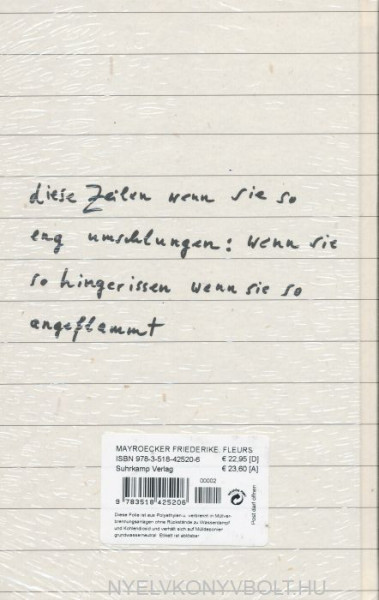 diese Zeilen wenn sie so
eng umschlungen: wenn sie
so hingerissen wenn sie so
angeflammt
MAYROECKER FRIEDERIKE, FLEURS
ISBN 978-3-518-42520-6
€ 22,95 [D]
Suhrkamp Verlag
€ 23,60 [A]
00002
9 783518 425206
Post darf öffnen
Diese Folie ist aus Polyäthylen u. verbrennt in Müllver-
brennungsanlagen ohne Rückstände zu Wasserdampf
und Kohlendioxid und verhält sich auf Mülldeponien
grundwasserneutral. Etikett ist ablösbar
NYELVKONYVBOLT.HU